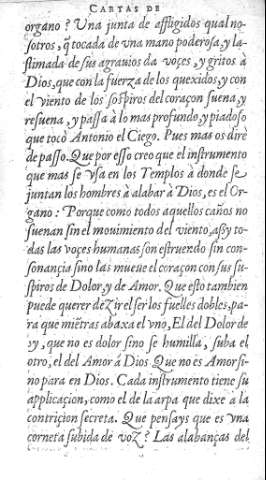 CARTAS DE
organo? Vna junta de affligidos qual no-
sotros, q̃ tocada de vna mano poderosa, y la-
stimada de sus agrauios da voçes, y gritos à
Dios, que con la fuerza de los quexidos, y con
el viento de los sospiros del coraçon suena, y
resuena, y passa à lo mas profundo, y piadoso
que tocò Antonio el Ciego. Pues mas os dirè
de passo. Que por esso creo que el instrumento
que mas se vsa en los Templos à donde se
juntan los hombres à alabar à Dios, es el Or-
gano: Porque como todos aquellos caños no
suenan sin el mouimiento del viento, assy to-
das las voçes humanas son estruendo sin con-
sonançia sino las mueue el coraçon con sus su-
spiros de Dolor, y de Amor. Que esto tambien
puede querer deZir el ser los fuelles dobles, pa-
ra que miẽtras abaxa el vno, El del Dolor de
sy, que no es dolor sino se humilla, suba el
otro, el del Amor à Dios Que no es Amor si-
no para en Dios. Cada instrumento tiene su
applicaçion, como el de la arpa que dixe a la
contriçion secreta. Que pensays que es vna
corneta subida de voZ? Las alabanças del